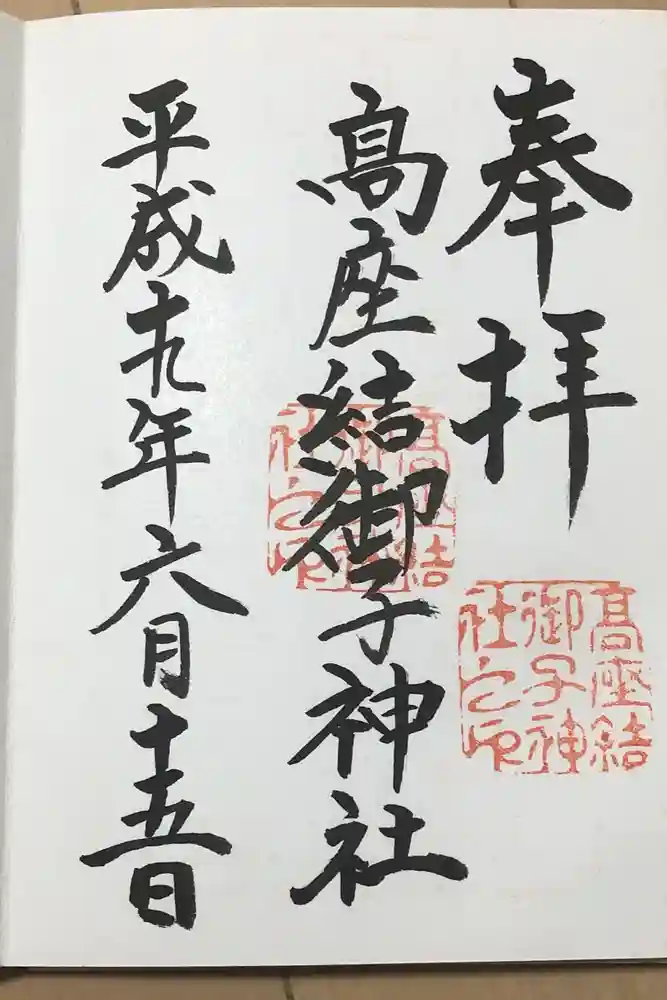 奉拝
髙座結御子神社
平成十九年六月十五日
髙座結
御子神
社之印
髙座結
御子神
社之印